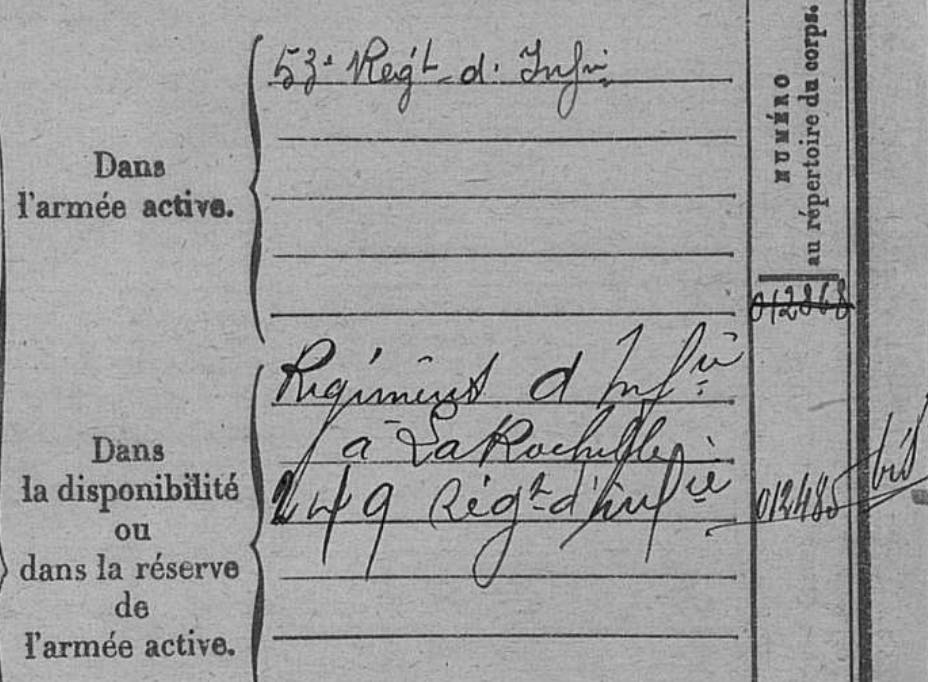 Dans
l'armée active.
53e Regt d'Infie
NUMÉRO
au répertoire du corps.
012868
Dans
la disponibilité
ou
dans la réserve
de
l'armée active.
Régiment d'Infie
à La Rochelle
249 Régt d'Infie
012485 bis